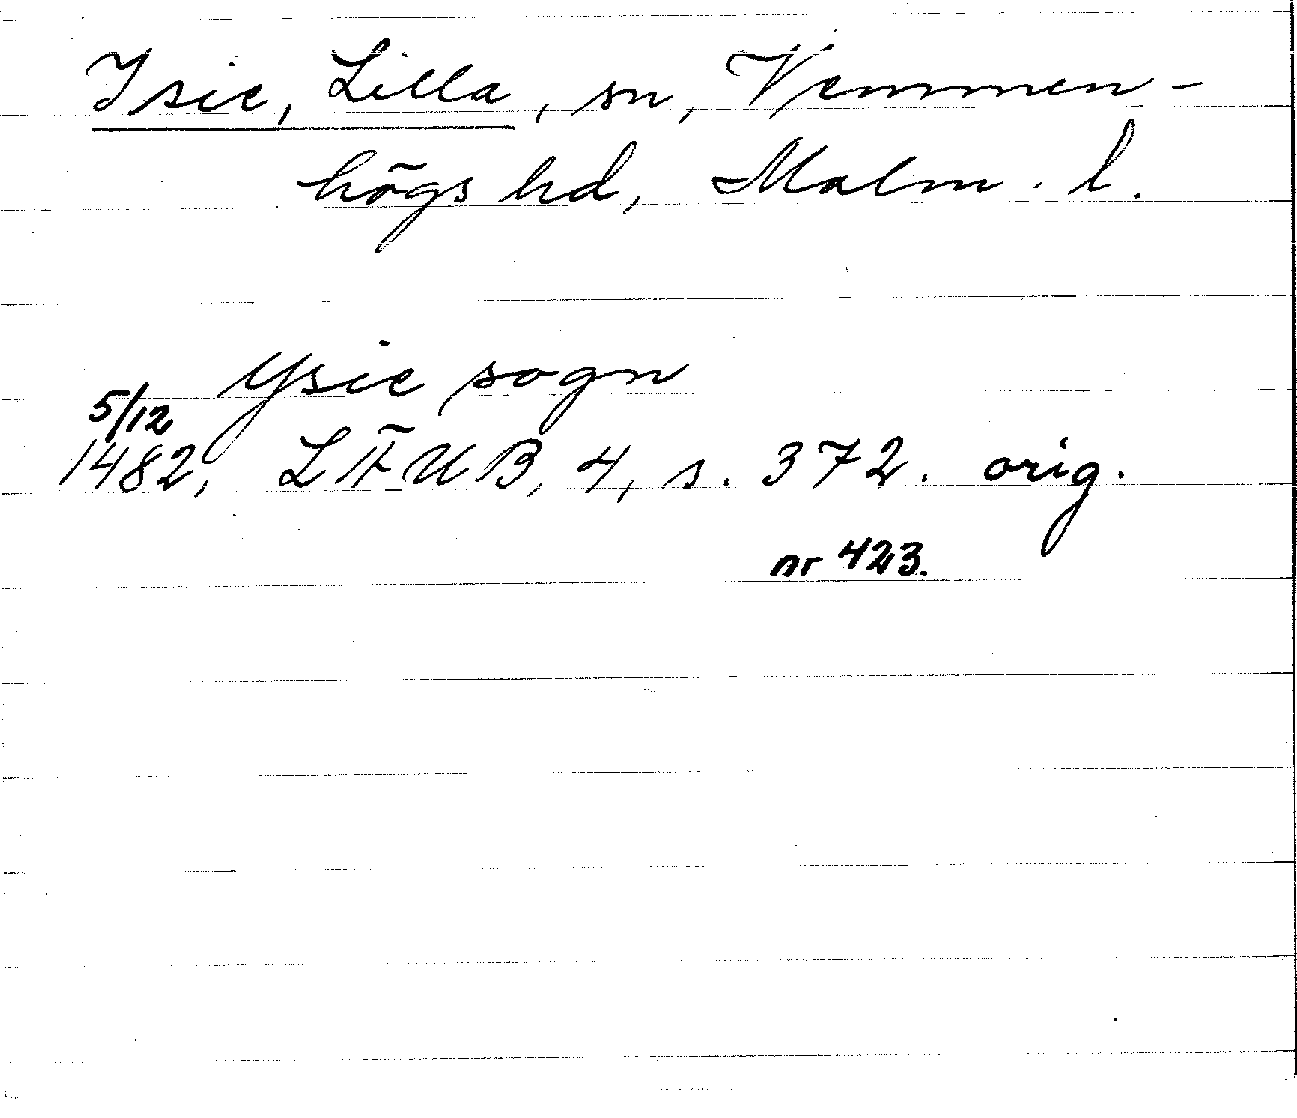 Isie, Lilla, sn, Vemmen-
högs hd, Malm. l.
Ysie sogn
5/12
1482, LÄUB, 4, s. 372. orig.
nr 423.